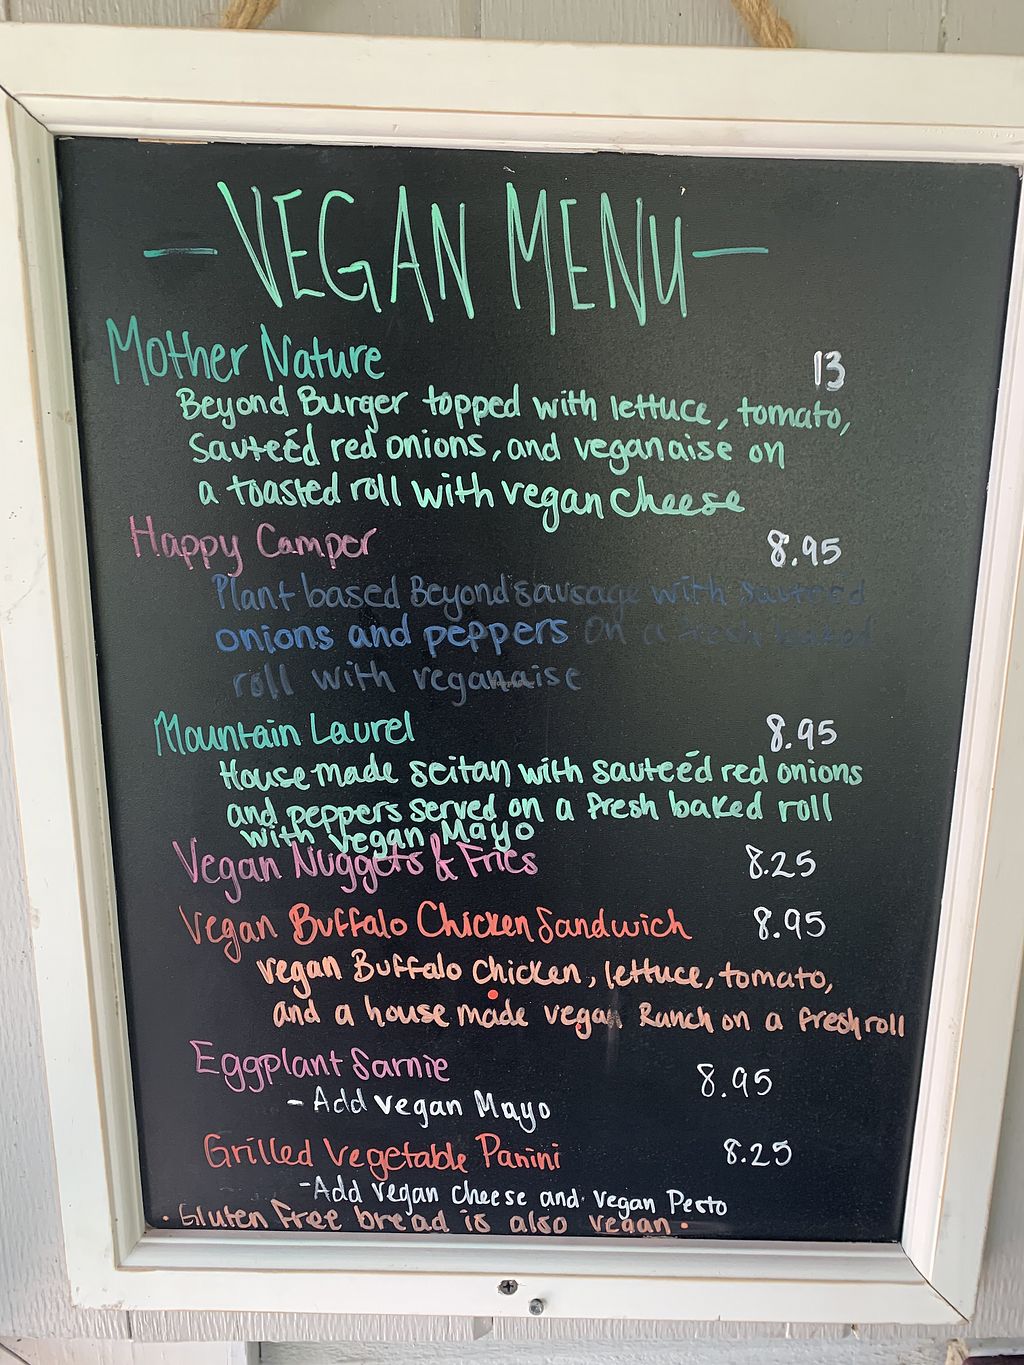 -VEGAN MENU-
Mother Nature 13
Beyond Burger topped with lettuce, tomato,
Sauteéd red onions, and veganaise on
a toasted roll with vegan cheese
Happy Camper 8.95
Plant based Beyond sausage with sauteed
onions and peppers on a fresh baked
roll with veganaise
HappyCow
Mountain Laurel 8.95
House made seitan with sauteéd red onions
and peppers served on a fresh baked roll
with vegan Mayo
Vegan Nuggets & Fries 8.25
Vegan Buffalo Chicken Sandwich 8.95
vegan Buffalo chicken, lettuce, tomato,
and a house made vegan Ranch on a fresh roll
Eggplant Sarnie 8.95
- Add vegan Mayo
Grilled Vegetable Panini 8.25
-Add vegan cheese and vegan Pesto
• Gluten Free bread is also vegan •